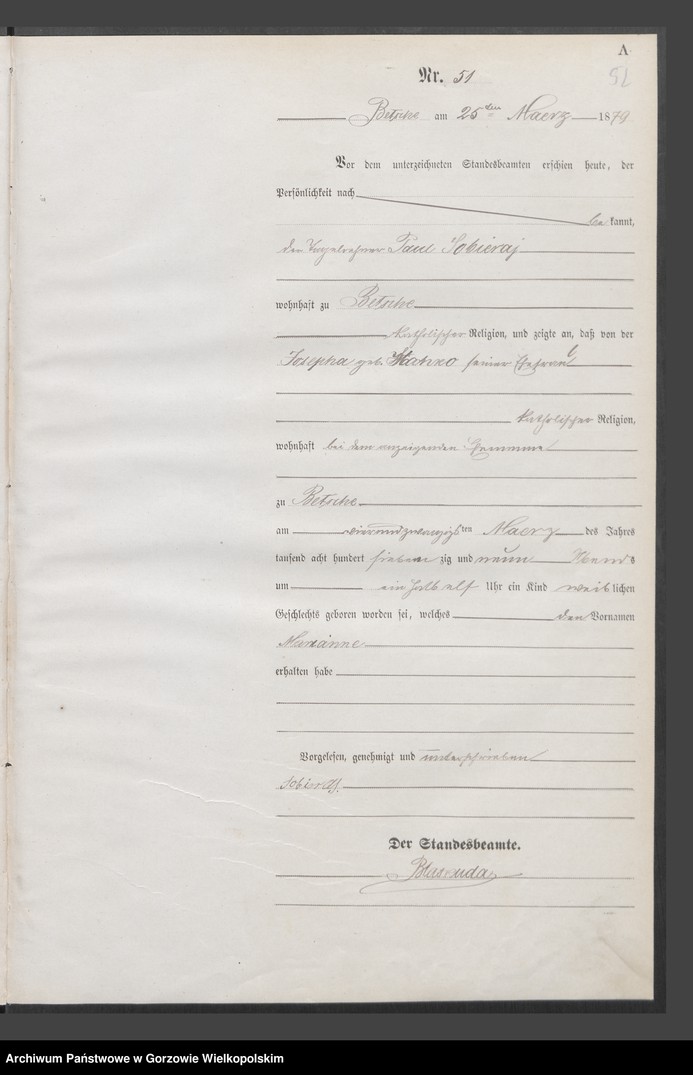 A
Nr. 51
52
Betsche am 25ten Maerz 1879
Vor dem unterzeichneten Standesbeamten erschien heute, der
Persönlichkeit nach
bekannt,
den Paul Sobieraj
wohnhaft zu Betsche
katholischer Religion, und zeigte an, daß von der
Josepha geb. seiner Ehefrau
katholischer Religion,
wohnhaft bei dem anzeigenden Ehemanne
zu Betsche
am vierundzwanzigsten Maerz des Jahres
tausend acht hundert siebenzig und neun Abends
um ein halb elf Uhr ein Kind weiblichen
Geschlechts geboren worden sei, welches den Vornamen
Marianne
erhalten habe
Vorgelesen, genehmigt und unterschrieben
Der Standesbeamte.
Archiwum Państwowe w Gorzowie Wielkopolskim